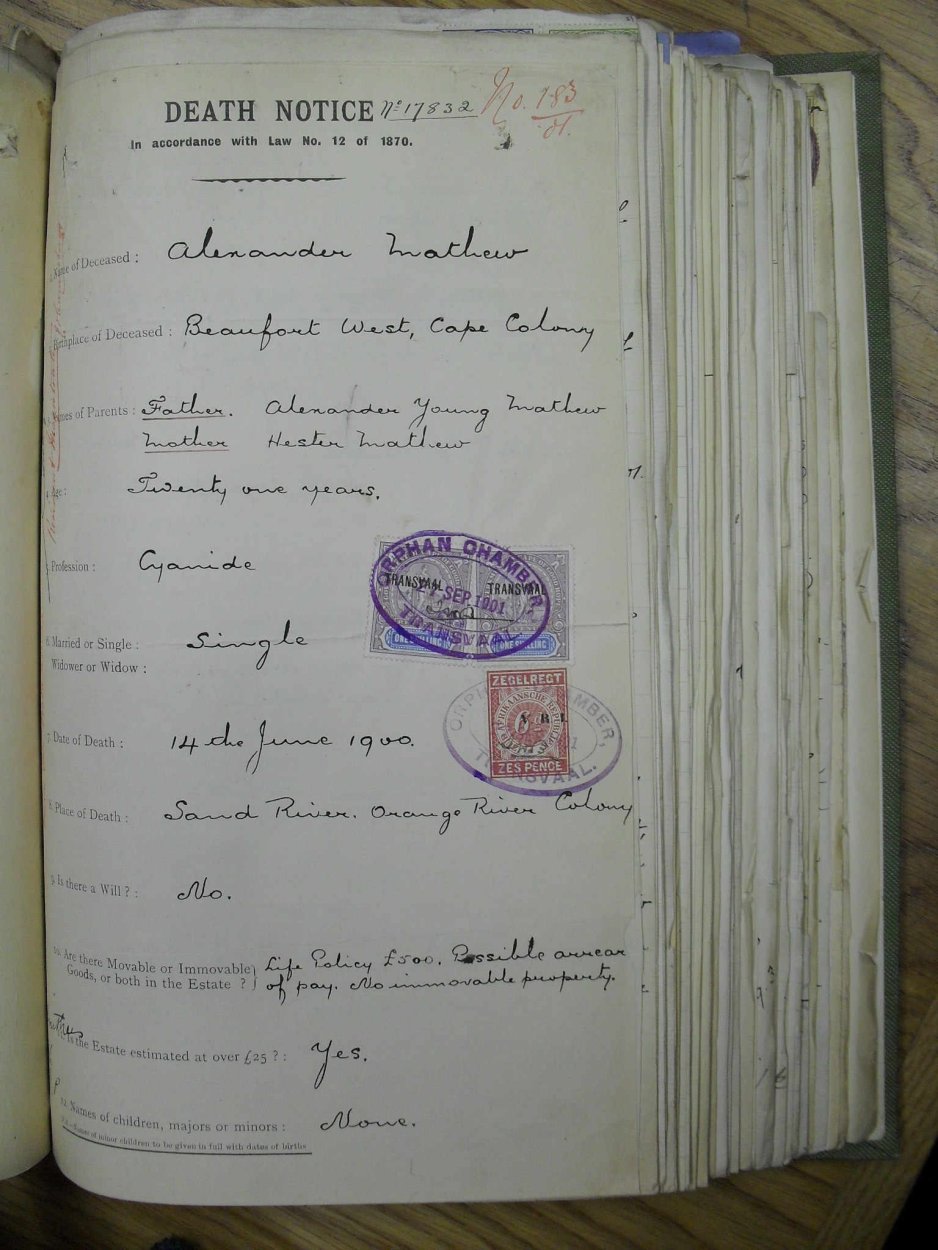 DEATH NOTICE No 17832 No. 183/01.
In accordance with Law No. 12 of 1870.
Name of Deceased : Alexander Mathew
Birthplace of Deceased : Beaufort West, Cape Colony
Names of Parents : Father. Alexander Young Mathew
Mother Hester Mathew
Age : Twenty one years.
Profession : Cyanide
ORPHAN CHAMBER,
TRANSVAAL TRANSVAAL
SEP 1901
TRANSVAAL
ONE SHILLING ONE SHILLING
6. Married or Single : Single
Widower or Widow :
ZEGELREGT
ORPHAN CHAMBER,
AFRIKAANSCHE REPUBLIEK
V. R. I.
ZES PENCE
TRANSVAAL.
7. Date of Death : 14 the June 1900.
8. Place of Death : Sand River. Orange River Colony
9. Is there a Will ? : No.
10. Are there Movable or Immovable Life Policy £500. Possible arrear
Goods, or both in the Estate ? of pay. No immovable property.
Is the Estate estimated at over £25 ? : Yes.
12. Names of children, majors or minors : None.
Names of minor children to be given in full with dates of births